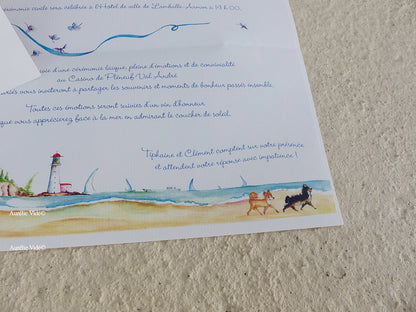 cérémonie civile sera célébrée à l'Hôtel de ville de Lamballe-Armor à 14h00,
suivie d'une cérémonie laïque, pleine d'émotions et de convivialité
au Casino de Pléneuf Val André
mariés vous inviteront à partager les souvenirs et moments de bonheur passés ensemble.
Toutes ces émotions seront suivies d'un vin d'honneur
que vous apprécierez face à la mer en admirant le coucher de soleil.
Tiphaine et Clément comptent sur votre présence
et attendent votre réponse avec impatience !
Aurélie Vide©
Aurélie Vide©